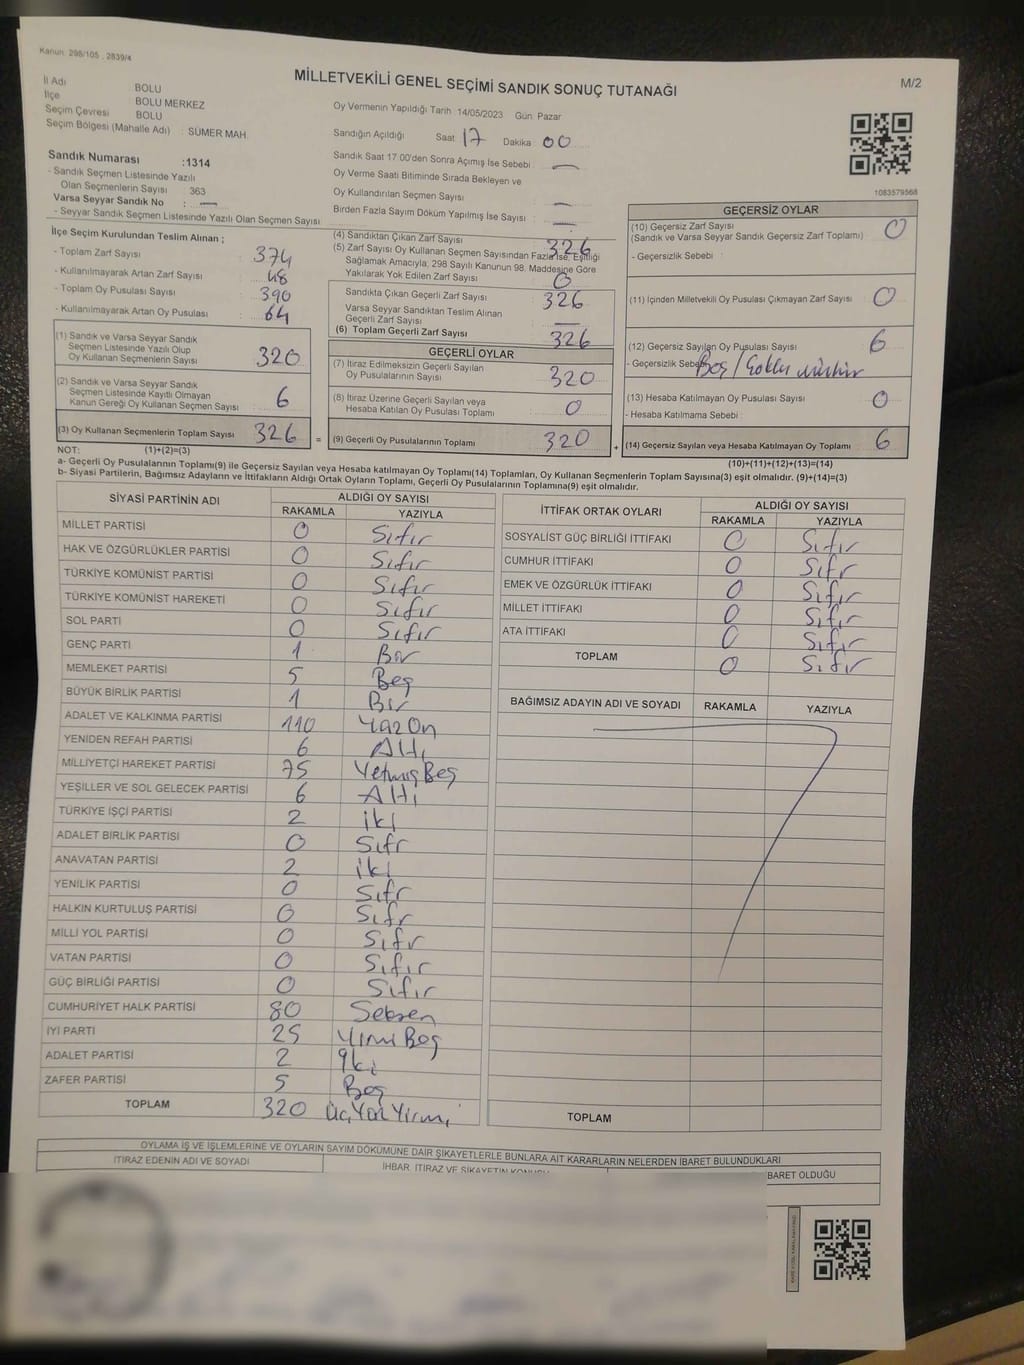 Kanun: 298/105 , 2839/4
MİLLETVEKİLİ GENEL SEÇİMİ SANDIK SONUÇ TUTANAĞI
M/2
İl Adı BOLU
İlçe BOLU MERKEZ
Seçim Çevresi BOLU
Seçim Bölgesi (Mahalle Adı) : SÜMER MAH.
Sandık Numarası :1314
- Sandık Seçmen Listesinde Yazılı
Olan Seçmenlerin Sayısı : 363
Varsa Seyyar Sandık No : —
- Seyyar Sandık Seçmen Listesinde Yazılı Olan Seçmen Sayısı
Oy Vermenin Yapıldığı Tarih: 14/05/2023 Gün: Pazar
Sandığın Açıldığı Saat 17 Dakika 00
Sandık Saat 17:00'den Sonra Açılmış İse Sebebi : —
Oy Verme Saati Bitiminde Sırada Bekleyen ve
Oy Kullandırılan Seçmen Sayısı : —
Birden Fazla Sayım Döküm Yapılmış İse Sayısı : —
1083579568
İlçe Seçim Kurulundan Teslim Alınan ;
- Toplam Zarf Sayısı : 374
- Kullanılmayarak Artan Zarf Sayısı : 48
- Toplam Oy Pusulası Sayısı : 390
- Kullanılmayarak Artan Oy Pusulası : 64
(1) Sandık ve Varsa Seyyar Sandık
Seçmen Listesinde Yazılı Olup
Oy Kullanan Seçmenlerin Sayısı : 320
(2) Sandık ve Varsa Seyyar Sandık
Seçmen Listesinde Kayıtlı Olmayan
Kanun Gereği Oy Kullanan Seçmen Sayısı : 6
(3) Oy Kullanan Seçmenlerin Toplam Sayısı : 326 =
(4) Sandıktan Çıkan Zarf Sayısı : 326
(5) Zarf Sayısı Oy Kullanan Seçmen Sayısından Fazla İse, Eşitliği
Sağlamak Amacıyla, 298 Sayılı Kanunun 98. Maddesine Göre
Yakılarak Yok Edilen Zarf Sayısı : 0
Sandıkta Çıkan Geçerli Zarf Sayısı : 326
Varsa Seyyar Sandıktan Teslim Alınan
Geçerli Zarf Sayısı : —
(6) Toplam Geçerli Zarf Sayısı : 326
GEÇERLİ OYLAR
(7) İtiraz Edilmeksizin Geçerli Sayılan
Oy Pusulalarının Sayısı : 320
(8) İtiraz Üzerine Geçerli Sayılan veya
Hesaba Katılan Oy Pusulası Toplamı : 0
(9) Geçerli Oy Pusulalarının Toplamı : 320 +
GEÇERSİZ OYLAR
(10) Geçersiz Zarf Sayısı
(Sandık ve Varsa Seyyar Sandık Geçersiz Zarf Toplamı) : 0
- Geçersizlik Sebebi :
(11) İçinden Milletvekili Oy Pusulası Çıkmayan Zarf Sayısı : 0
(12) Geçersiz Sayılan Oy Pusulası Sayısı : 6
- Geçersizlik Sebebi Boş /
(13) Hesaba Katılmayan Oy Pusulası Sayısı : 0
- Hesaba Katılmama Sebebi :
(14) Geçersiz Sayılan veya Hesaba Katılmayan Oy Toplamı : 6
NOT: (1)+(2)=(3)
(10)+(11)+(12)+(13)=(14)
a- Geçerli Oy Pusulalarının Toplamı(9) ile Geçersiz Sayılan veya Hesaba katılmayan Oy Toplamı(14) Toplamları, Oy Kullanan Seçmenlerin Toplam Sayısına(3) eşit olmalıdır. (9)+(14)=(3)
b- Siyasi Partilerin, Bağımsız Adayların ve İttifakların Aldığı Ortak Oyların Toplamı, Geçerli Oy Pusulalarının Toplamına(9) eşit olmalıdır.
SİYASİ PARTİNİN ADI ALDIĞI OY SAYISI
RAKAMLA YAZIYLA
MİLLET PARTİSİ 0 Sıfır
HAK VE ÖZGÜRLÜKLER PARTİSİ 0 Sıfır
TÜRKİYE KOMÜNİST PARTİSİ 0 Sıfır
TÜRKİYE KOMÜNİST HAREKETİ 0 Sıfır
SOL PARTİ 0 Sıfır
GENÇ PARTİ 1 Bir
MEMLEKET PARTİSİ 5 Beş
BÜYÜK BİRLİK PARTİSİ 1 Bir
ADALET VE KALKINMA PARTİSİ 110 Yüz On
YENİDEN REFAH PARTİSİ 6 Altı
MİLLİYETÇİ HAREKET PARTİSİ 75 Yetmiş Beş
YEŞİLLER VE SOL GELECEK PARTİSİ 6 Altı
TÜRKİYE İŞÇİ PARTİSİ 2 iki
ADALET BİRLİK PARTİSİ 0 Sıfır
ANAVATAN PARTİSİ 2 iki
YENİLİK PARTİSİ 0 Sıfır
HALKIN KURTULUŞ PARTİSİ 0 Sıfır
MİLLİ YOL PARTİSİ 0 Sıfır
VATAN PARTİSİ 0 Sıfır
GÜÇ BİRLİĞİ PARTİSİ 0 Sıfır
CUMHURİYET HALK PARTİSİ 80 Seksen
İYİ PARTİ 25 Yirmi Beş
ADALET PARTİSİ 2 iki
ZAFER PARTİSİ 5 Beş
TOPLAM 320 Üç Yüz Yirmi
İTTİFAK ORTAK OYLARI ALDIĞI OY SAYISI
RAKAMLA YAZIYLA
SOSYALİST GÜÇ BİRLİĞİ İTTİFAKI 0 Sıfır
CUMHUR İTTİFAKI 0 Sıfır
EMEK VE ÖZGÜRLÜK İTTİFAKI 0 Sıfır
MİLLET İTTİFAKI 0 Sıfır
ATA İTTİFAKI 0 Sıfır
TOPLAM 0 Sıfır
BAĞIMSIZ ADAYIN ADI VE SOYADI RAKAMLA YAZIYLA
TOPLAM
OYLAMA İŞ VE İŞLEMLERİNE VE OYLARIN SAYIM DÖKÜMÜNE DAİR ŞİKAYETLERLE BUNLARA AİT KARARLARIN NELERDEN İBARET BULUNDUKLARI
İTİRAZ EDENİN ADI VE SOYADI İHBAR, İTİRAZ VE ŞİKAYETİN KONUSU BARET OLDUĞU